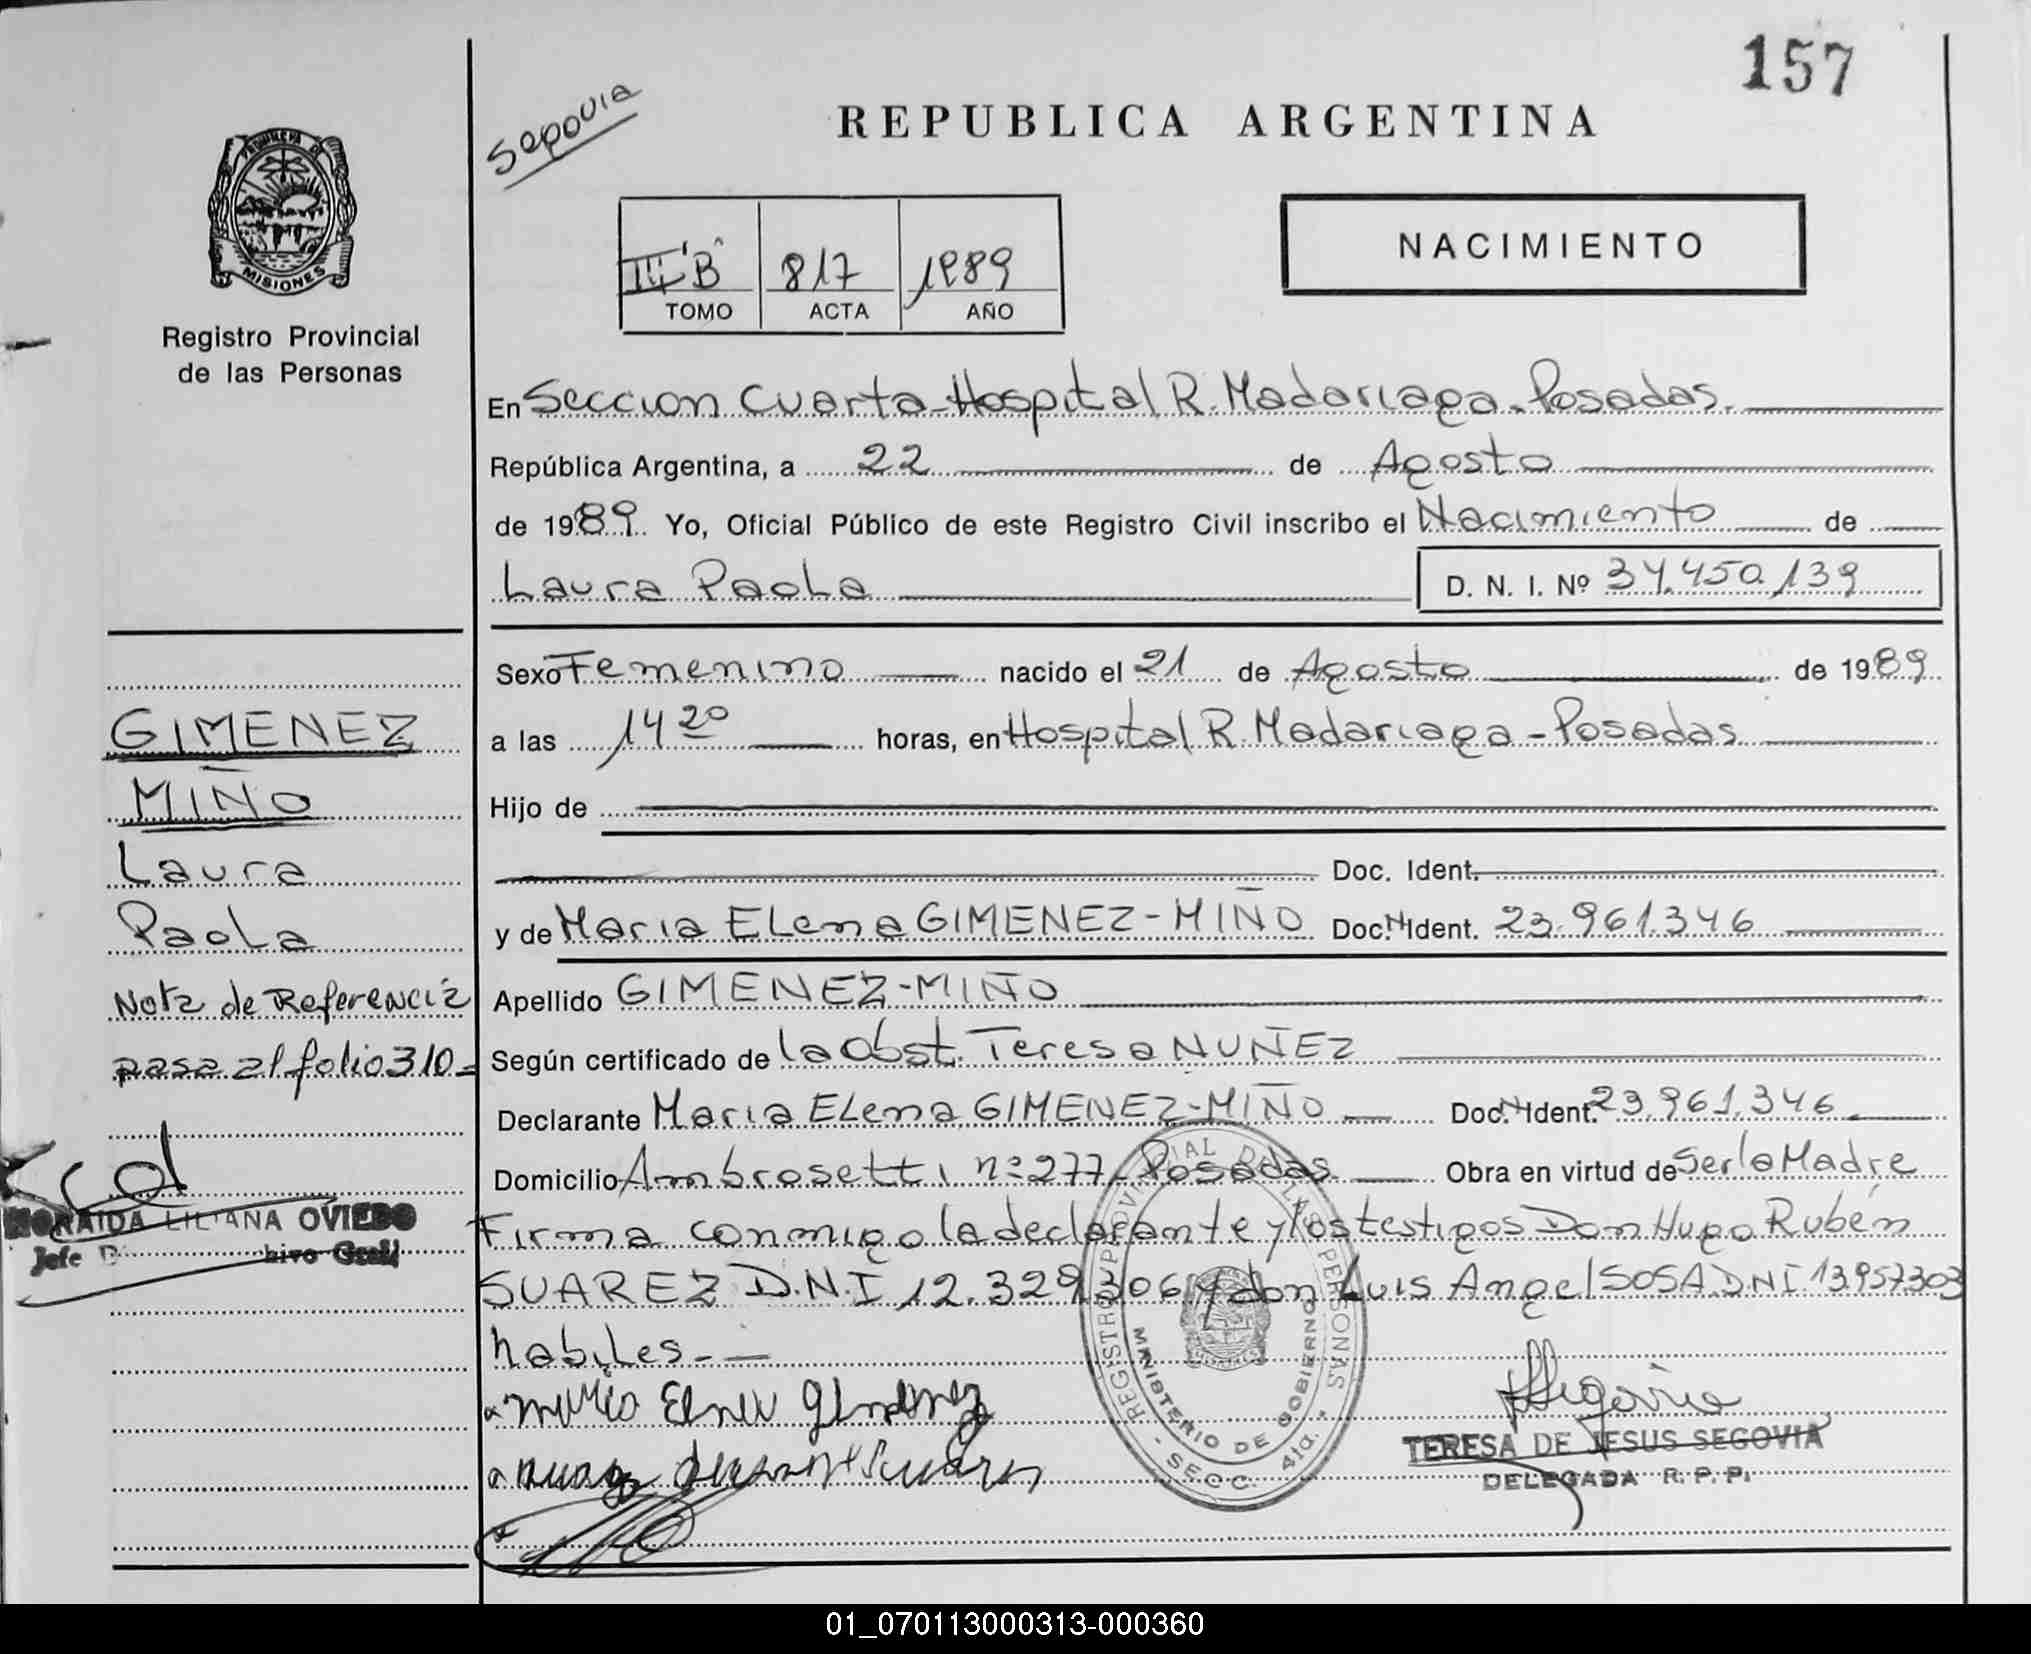 157
Segovia
REPUBLICA ARGENTINA
PROVINCIA DE
MISIONES
Registro Provincial
de las Personas
III "B" 817 1989
TOMO ACTA AÑO
NACIMIENTO
En Seccion Cuarta-Hospital R. Madariaga. Posadas.
República Argentina, a 22 de Agosto
de 1989. Yo, Oficial Público de este Registro Civil inscribo el Nacimiento de
Laura Paola D. N. I. Nº 34.450.139
Sexo Femenino nacido el 21 de Agosto de 1989
a las 14 20 horas, en Hospital R. Madariaga - Posadas
Hijo de
Doc. Ident.
y de Maria Elena GIMENEZ-MIÑO Doc.N.Ident. 23.961.346
Apellido GIMENEZ-MIÑO
Según certificado de la Obst. Teresa NUÑEZ
Declarante Maria Elena GIMENEZ-MIÑO Doc.N.Ident. 23.961.346
Domicilio Ambrosetti nº 277. Posadas. Obra en virtud de Ser la Madre
Firma conmigo la declarante y los testigos Don Hugo Rubén
SUAREZ D.N.I 12.329.306 y don Luis Angel SOSA.D.N.I 13957303
habiles.-
GIMENEZ
MIÑO
Laura
Paola
Nota de Referencia
pasa al folio 310=
NORAIDA LILIANA OVIEDO
Jefe
Maria Elena Gimenez
Segovia
TERESA DE JESUS SEGOVIA
DELEGADA R. P. P.
REGISTRO PROVINCIAL DE LAS PERSONAS
MINISTERIO DE GOBIERNO
- SECC. 4ta. -
01_070113000313-000360